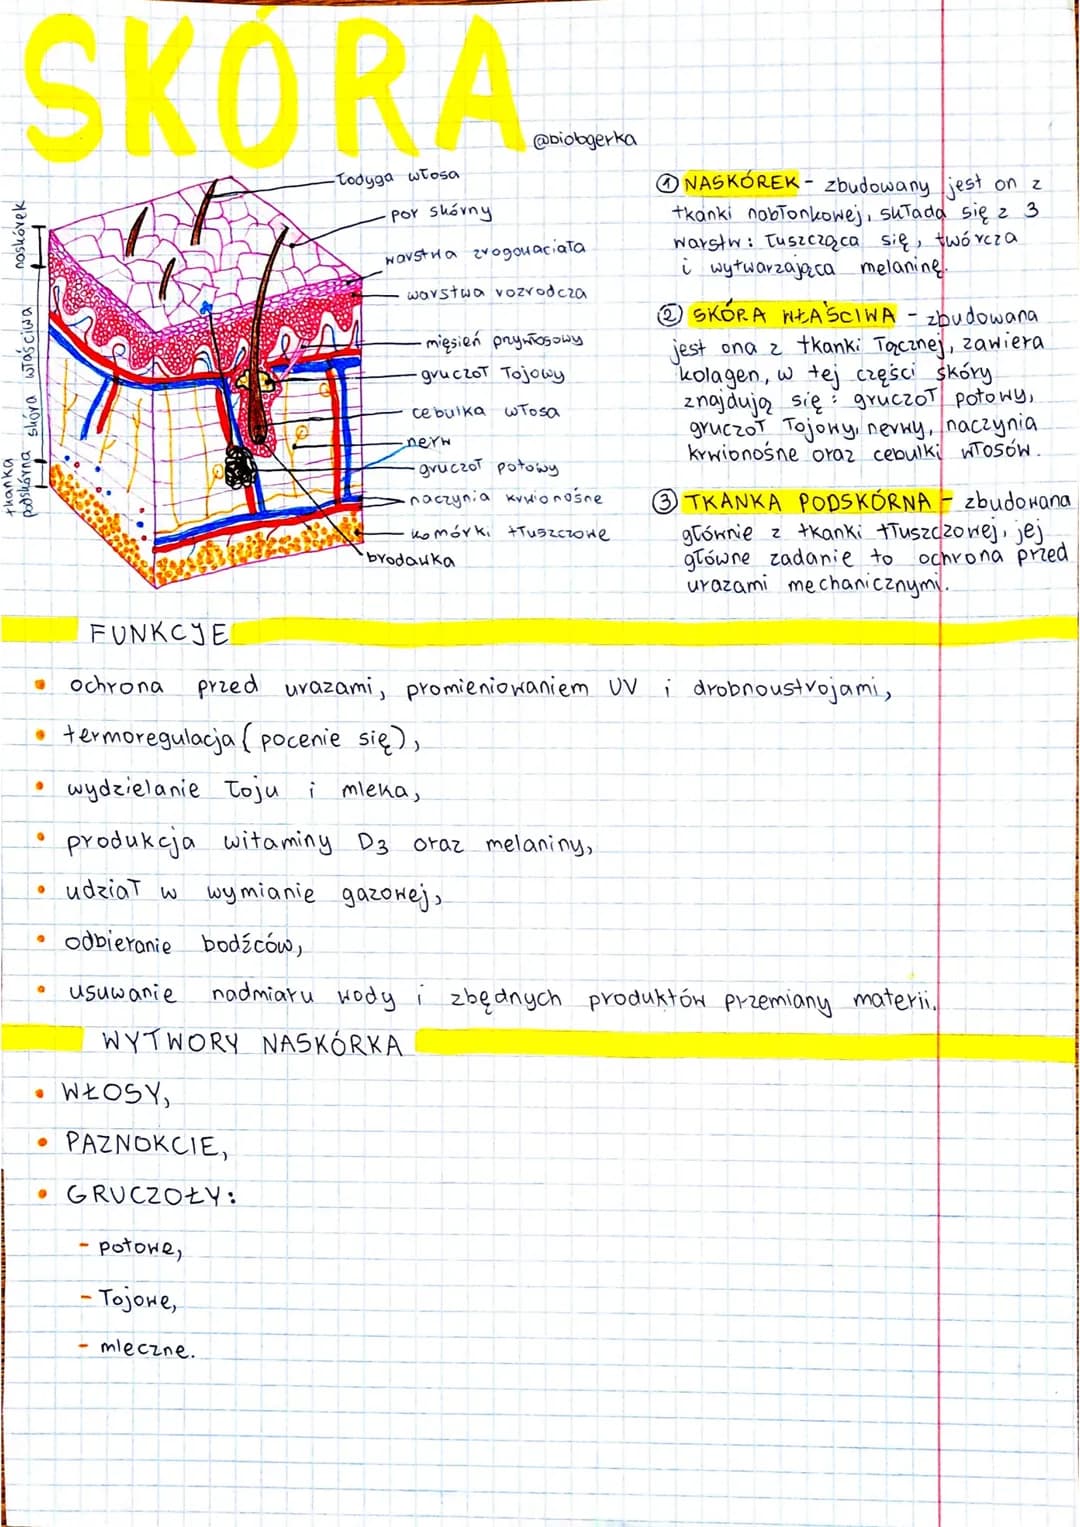 SKÓRA
@biolgerka
naskórek
skóra właściwa
tkanka
podskórna
łodyga włosa
por skórny
warstwa zrogowaciała
warstwa rozrodcza
mięsień przywłosowy
gruczoł łojowy
cebulka włosa
nerw
gruczoł potowy
naczynia krwionośne
komórki tłuszczowe
brodawka
① NASKÓREK - zbudowany jest on z
tkanki nabłonkowej, składa się z 3
warstw: łuszcząca się, twórcza
i wytwarzająca melaninę.
② SKÓRA WŁAŚCIWA - zbudowana
jest ona z tkanki łącznej, zawiera
kolagen, w tej części skóry
znajdują się: gruczoł potowy,
gruczoł łojowy, nerwy, naczynia
krwionośne oraz cebulki włosów.
③ TKANKA PODSKÓRNA - zbudowana
głównie z tkanki tłuszczowej, jej
główne zadanie to ochrona przed
urazami mechanicznymi.
FUNKCJE
• ochrona przed urazami, promieniowaniem UV i drobnoustrojami,
• termoregulacja (pocenie się),
• wydzielanie łoju i mleka,
• produkcja witaminy D3 oraz melaniny,
• udział w wymianie gazowej,
• odbieranie bodźców,
• usuwanie nadmiaru wody i zbędnych produktów przemiany materii.
WYTWORY NASKÓRKA
• WŁOSY,
• PAZNOKCIE,
• GRUCZOŁY:
- potowe,
- łojowe,
- mleczne.